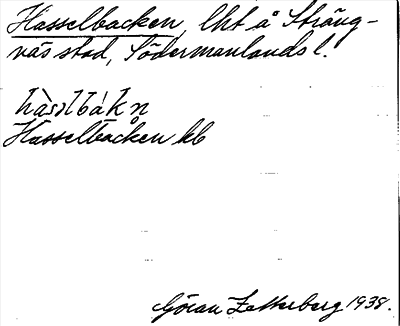 Hasselbacken, lht å Sträng-
näs stad, Södermanlands l.
hàsḷbákn̥
Hasselbacken kb
Göran Zetterberg 1938.